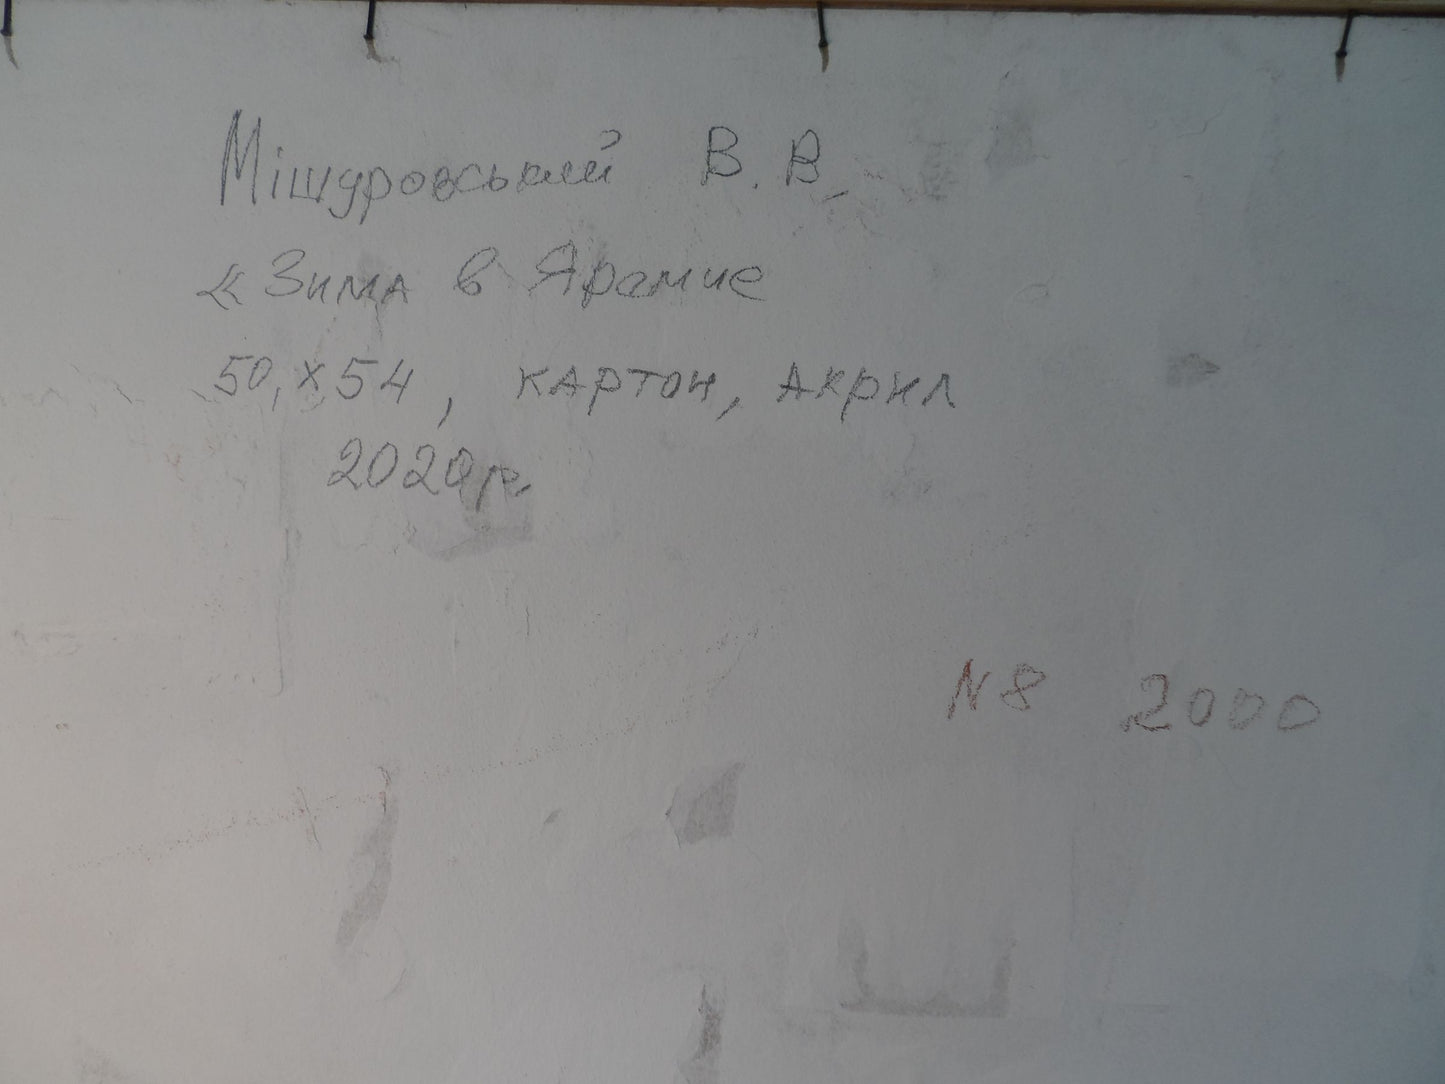 Мішуровський В. В.
«Зима в Яремче
50,х54, картон, акрил
2020р.
N8 2000